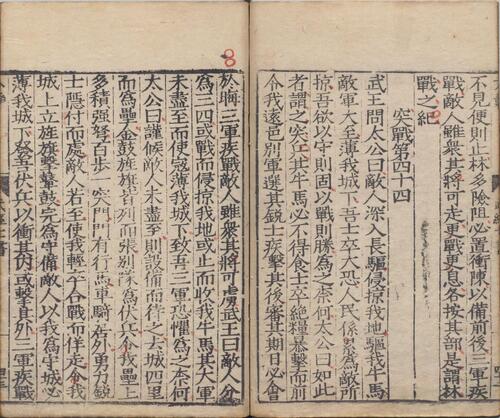 不見便則止林多險阻必置衝陳以備前後三軍疾
戰敵人雖衆其將可走更戰更息各按其部是謂林
戰之紀
突戰第四十四
武王問太公曰敵人深入長驅侵掠我地驅我牛馬
敵軍大至薄我城下吾士卒大恐人民係累爲敵所
掠吾欲以守則固以戰則勝爲之奈何太公曰如此
者謂之突兵其牛馬必不得食士卒絶糧暴擊而前
令我遠邑別軍選其銳士疾擊其後審其期日必會
8
於晦三軍疾戰敵人雖衆其將可虜武王曰敵人分
爲三四或戰而侵掠我地或止而收我牛馬其大軍
未盡至而使寇薄我城下致吾三軍恐懼爲之奈何
太公曰謹候敵人未盡至則設備而待之去城四里
而爲壘金鼓旌旗皆列而張別隊爲伏兵令我壘上
多積强弩百步一突門門有行馬車騎在外勇力銳
士隱伏而處敵人若至使我輕卒合戰而佯走令我
城上立旌旗擊鼙鼓完爲守備敵人以我爲守城必
薄我城下發吾伏兵以衝其内或擊其外三軍疾戰